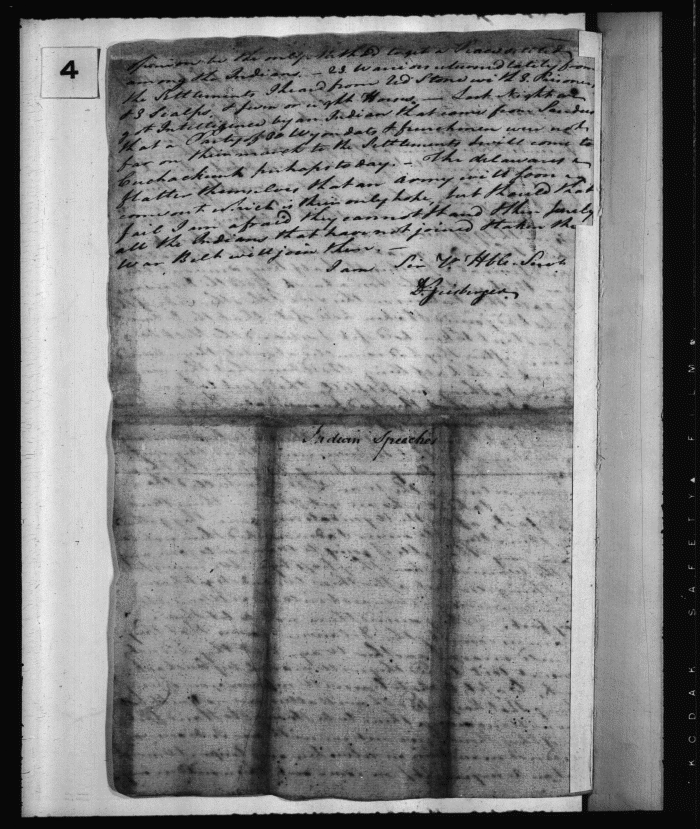 4
opinion be the only Method to get a Peace
among the Indians. - 23 Warriors returned lately from
the Settlements I heard from Wd Stone with 2 Prisoners
& 3 Scalps, & five or eight Horses, - Last Night a
got Intelligence by an Indian that came from Sandus
that a Party of Wyondats & frenchmen were not
far on their march to the Settlements & will come to
Cuchackunk perhaps to day. - The delawares
flatter themselves that an Army will soon
come out which is their only hope, but should that
fail I am afraid they cannot stand & then surely
all the Indians that have not joined & taken the
War Belt will join them. -
I am Sir Yr. Hble. Servt.
D. Zeisberger
Indian Speeches
KODAK SAFETY FILM